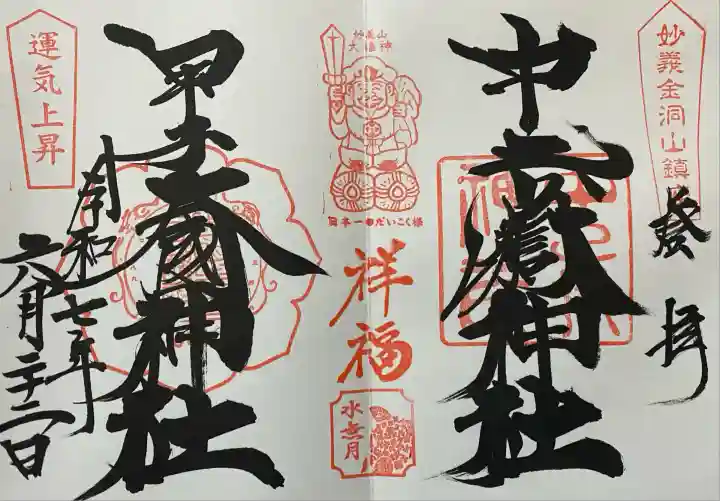 妙義金洞山鎮
登拝
中之嶽神社
妙義山
日本一のだいこく様
祥福
水無月
甲子大國神社
令和七年
六月二十二日
運気上昇